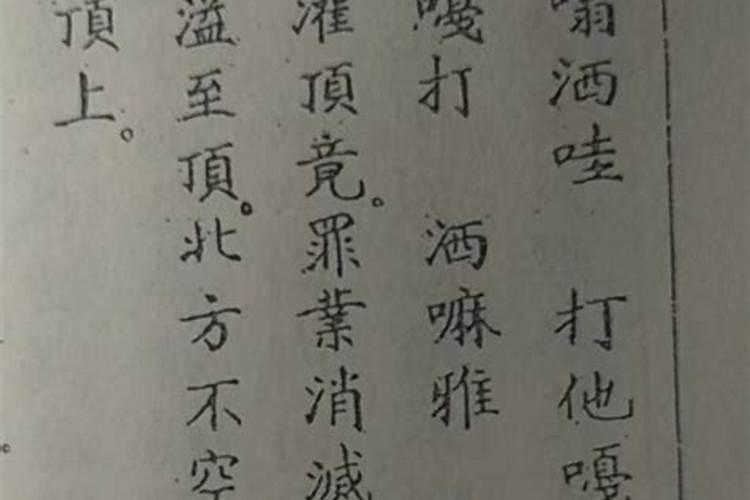 嗡洒哇 打他嗄
嗄打 洒嘛雅
灌頂竟。罪業消滅
溢至頂。北方不空
頂上。